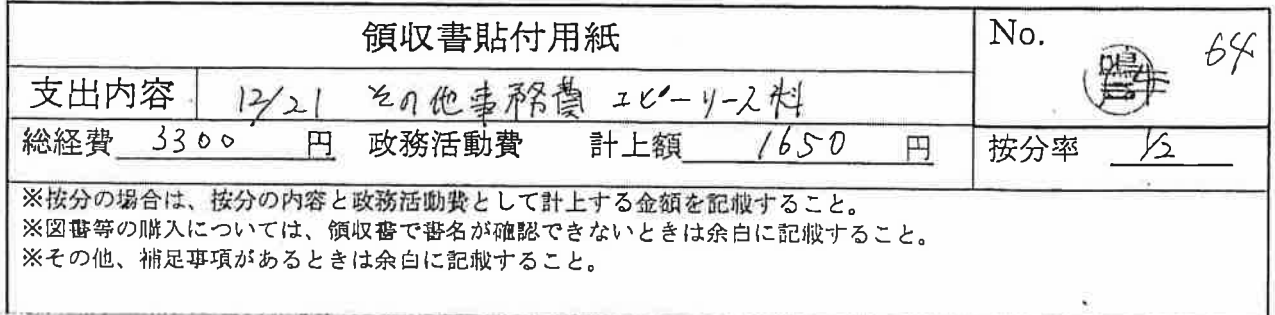 領収書貼付用紙
No. 64
支出内容 12/21 その他事務費 コピーリース料
総経費 3300 円 政務活動費 計上額 1650 円 按分率 1/2
※按分の場合は、按分の内容と政務活動費として計上する金額を記載すること。
※図書等の購入については、領収書で書名が確認できないときは余白に記載すること。
※その他、補足事項があるときは余白に記載すること。